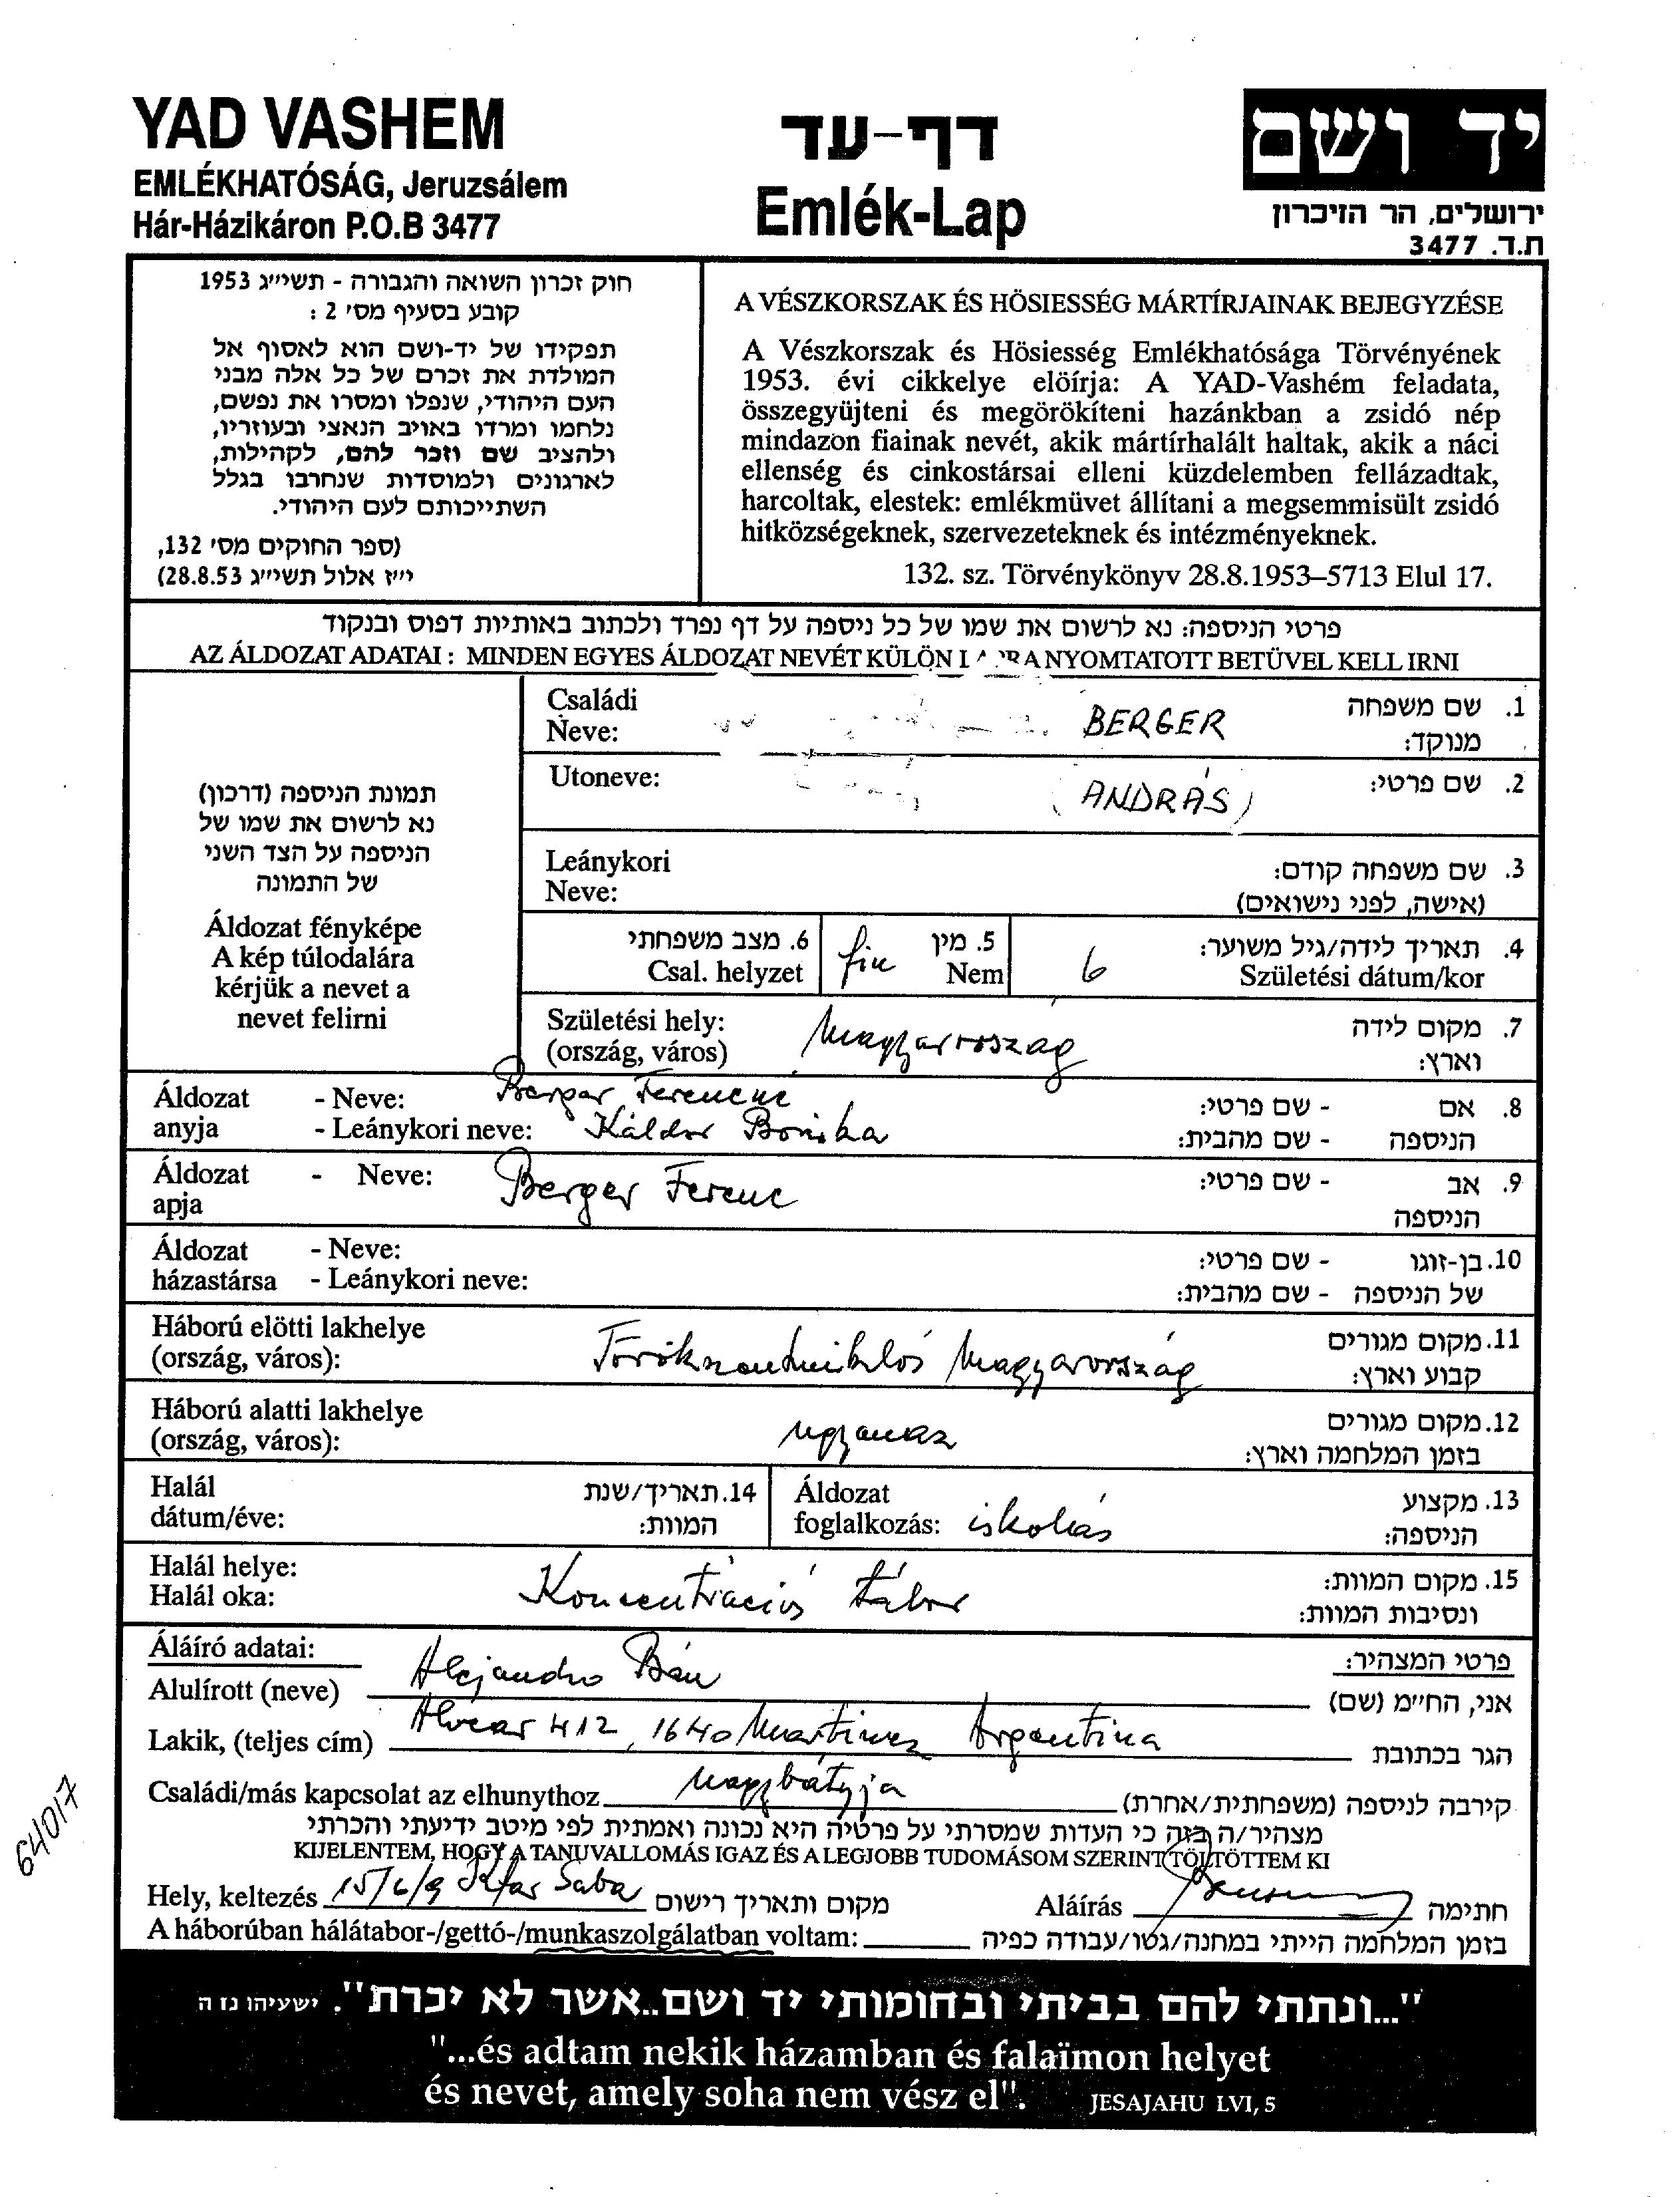 YAD VASHEM
EMLÉKHATÓSÁG, Jeruzsálem
Hár-Házikáron P.O.B 3477
דף-עד
Emlék-Lap
יד ושם
ירושלים, הר הזיכרון
ת.ד. 3477
חוק זכרון השואה והגבורה - תשי״ג 1953
קובע בסעיף מס׳ 2 :
תפקידו של יד-ושם הוא לאסוף אל
המולדת את זכרם של כל אלה מבני
העם היהודי, שנפלו ומסרו את נפשם,
נלחמו ומרדו באויב הנאצי ובעוזריו,
ולהציב שם וזכר להם, לקהילות,
לארגונים ולמוסדות שנחרבו בגלל
השתייכותם לעם היהודי.
(ספר החוקים מס׳ 132,
י״ז אלול תשי״ג 28.8.53)
A VÉSZKORSZAK ÉS HÖSIESSÉG MÁRTÍRJAINAK BEJEGYZÉSE
A Vészkorszak és Hösiesség Emlékhatósága Törvényének
1953. évi cikkelye elöírja: A YAD-Vashém feladata,
összegyüjteni és megörökíteni hazánkban a zsidó nép
mindazon fiainak nevét, akik mártírhalált haltak, akik a náci
ellenség és cinkostársai elleni küzdelemben fellázadtak,
harcoltak, elestek: emlékmüvet állítani a megsemmisült zsidó
hitközségeknek, szervezeteknek és intézményeknek.
132. sz. Törvénykönyv 28.8.1953–5713 Elul 17.
פרטי הניספה: נא לרשום את שמו של כל ניספה על דף נפרד ולכתוב באותיות דפוס ובנקוד
AZ ÁLDOZAT ADATAI : MINDEN EGYES ÁLDOZAT NEVÉT KÜLÖN NYOMTATOTT BETÜVEL KELL IRNI
תמונת הניספה (דרכון)
נא לרשום את שמו של
הניספה על הצד השני
של התמונה
Áldozat fényképe
A kép túlodalára
kérjük a nevet a
nevet felirni
Családi
Neve:
BERGER
1. שם משפחה
מנוקד:
Utoneve:
(ANDRÁS)
2. שם פרטי:
Leánykori
Neve:
3. שם משפחה קודם:
(אישה, לפני נישואים)
6. מצב משפחתי
Csal. helyzet
fiu
5. מין
Nem
6
4. תאריך לידה/גיל משוער:
Születési dátum/kor
Születési hely:
(ország, város)
Magyarország
7. מקום לידה
וארץ:
Áldozat - Neve: Berger Ferencné
anyja - Leánykori neve: Káldor Boriska
8. אם - שם פרטי:
הניספה - שם מהבית:
Áldozat - Neve: Berger Ferenc
apja
9. אב - שם פרטי:
הניספה
Áldozat - Neve:
házastársa - Leánykori neve:
10. בן-זוגו - שם פרטי:
של הניספה - שם מהבית:
Háború elötti lakhelye
(ország, város):
Törökszentmiklós Magyarország
11. מקום מגורים
קבוע וארץ:
Háború alatti lakhelye
(ország, város):
ugyanaz
12. מקום מגורים
בזמן המלחמה וארץ:
Halál
dátum/éve:
14. תאריך/שנת
המוות:
Áldozat
foglalkozás: iskolás
13. מקצוע
הניספה:
Halál helye:
Halál oka:
Koncentrációs tábor
15. מקום המוות:
ונסיבות המוות:
Áláíró adatai:
פרטי המצהיר:
Alulírott (neve) Alejandro Bán אני, החי״מ (שם)
Lakik, (teljes cím) Alvear 412, 1640 Martinez Argentina הגר בכתובת
Családi/más kapcsolat az elhunythoz Nagybátyja קירבה לניספה (משפחתית/אחרת)
מצהיר/ה בזה כי העדות שמסרתי על פרטיה היא נכונה ואמתית לפי מיטב ידיעתי והכרתי
KIJELENTEM, HOGY A TANUVALLOMÁS IGAZ ÉS A LEGJOBB TUDOMÁSOM SZERINT TÖLTÖTTEM KI
Hely, keltezés 15/6/9 Kfar Saba מקום ותאריך רישום Aláírás חתימה
A háborúban hálátabor-/gettó-/munkaszolgálatban voltam: בזמן המלחמה הייתי במחנה/גטו/עבודה כפיה
64017
"...ונתתי להם בביתי ובחומותי יד ושם..אשר לא יכרת". ישעיהו נו ה
"...és adtam nekik házamban és falaïmon helyet
és nevet, amely soha nem vész el". JESAJAHU LVI, 5